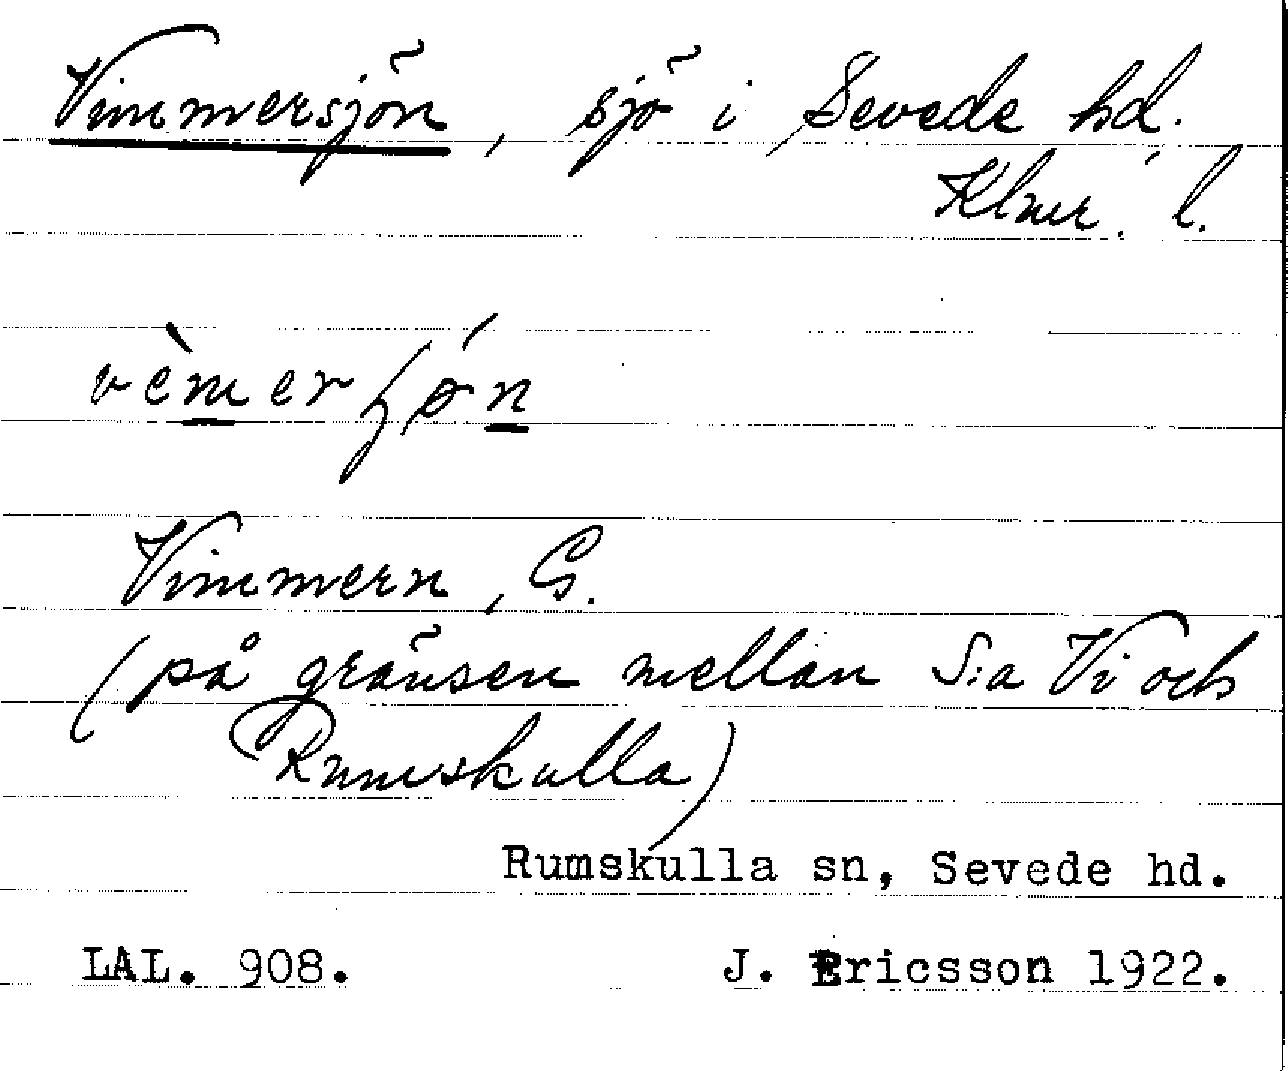 Vimmersjön, sjö i Sevede hd.
Klmr. l.
vèmerʃǿn
Vimmern, G.
(på gränsen mellan S:a Vi och
Rumskulla)
Rumskulla sn, Sevede hd.
LAL. 908. J. Ericsson 1922.